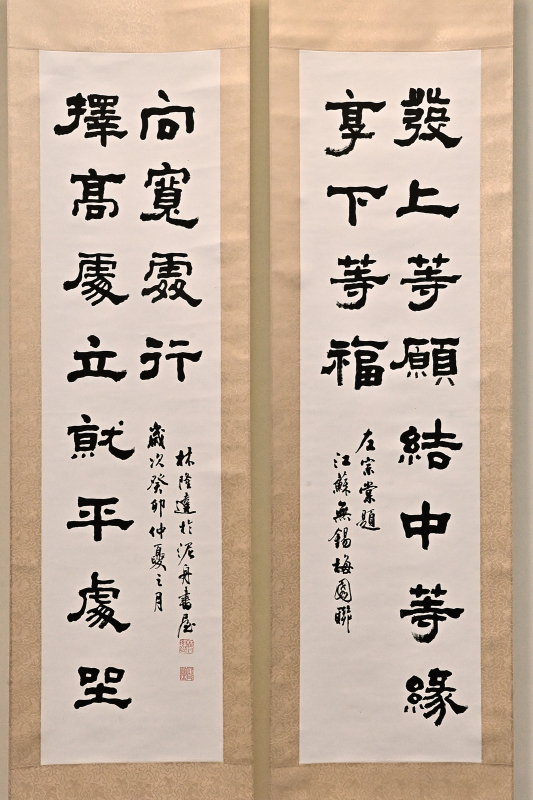 發上等願結中等緣
享下等福
左宗棠題
江蘇無錫梅園聯
擇高處立就平處坐
向寬處行
歲次癸卯仲夏之月
林隆達於泥舟書屋